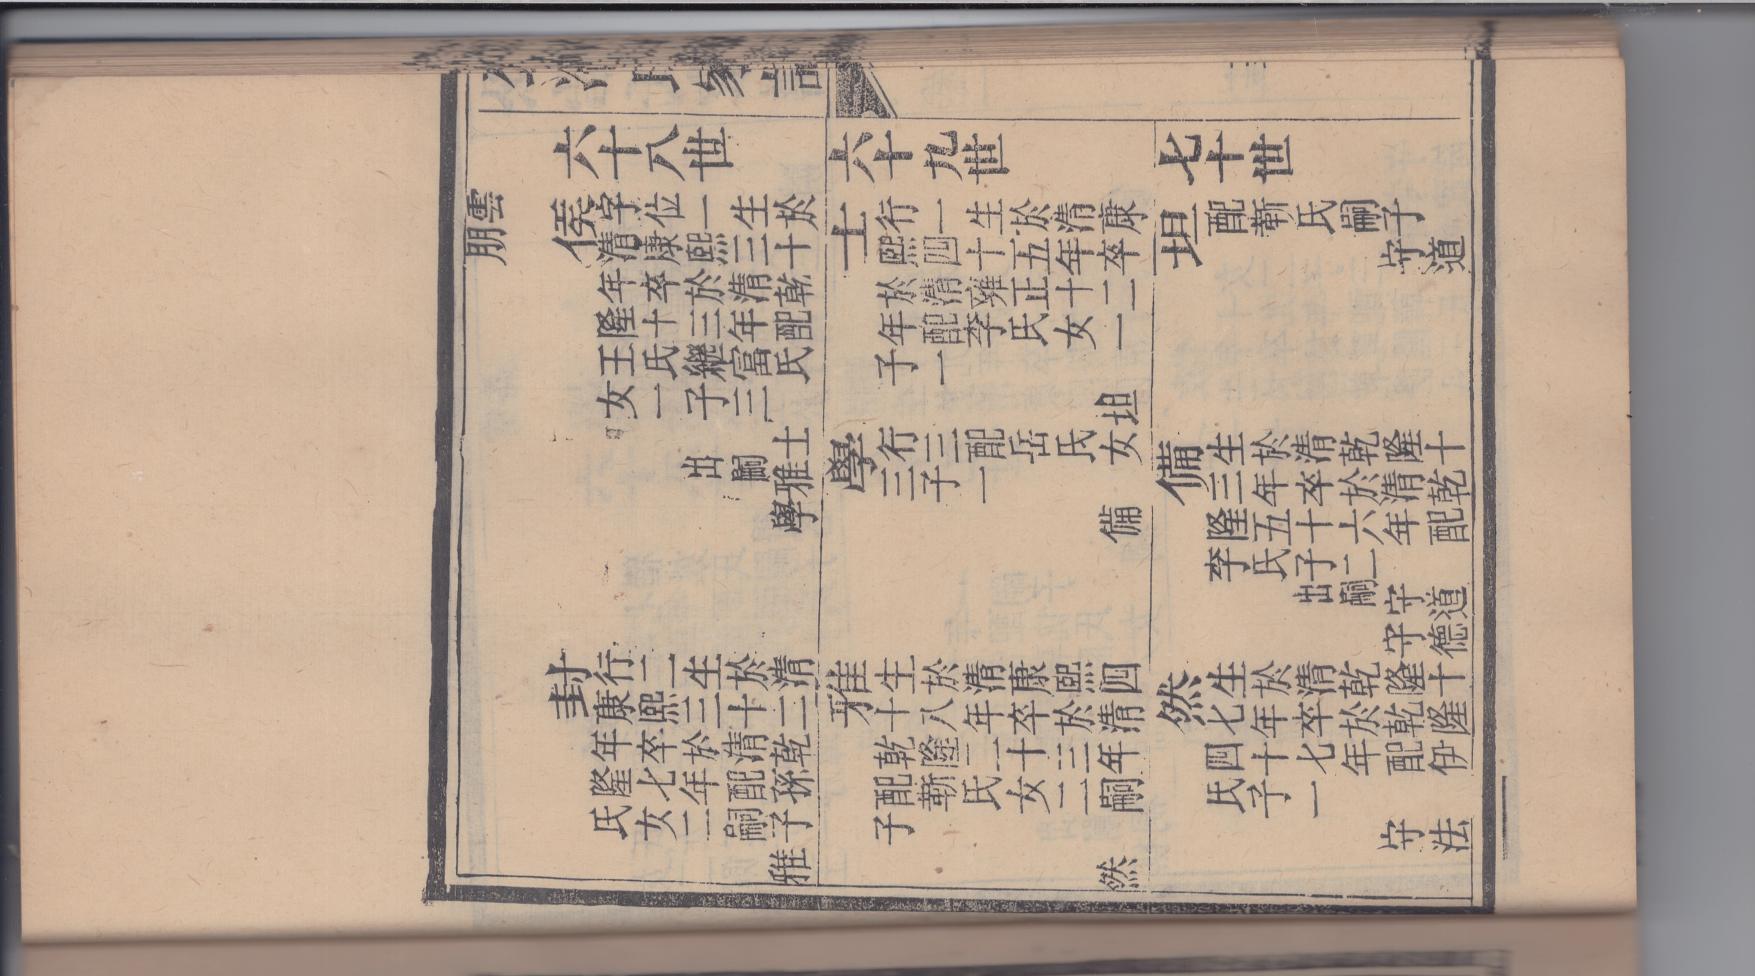 六十八世
六十九世
七十世
雲
朋
侯 字位一生於
清康熙三十
年卒於清乾
隆十三年配
王氏繼富氏
女一子三
士
雅出嗣
學
士 行一生於清康
熙四十五年卒
於清雍正十二
年配李氏女一
子一
坦
坦 配靳氏嗣子
守道
學 行三配岳氏女
三子一
備
備 生於清乾隆十
三年卒於清乾
隆五十六年配
李氏子二
守道出嗣
守德
封 行二一生於清
康熙三十二
年卒於清乾
隆七年配孫
氏女二嗣子
雅
雅 生於清康熙四
十八年卒於清
乾隆二十三年
配靳氏女二嗣
子
然
然 生於清乾隆十
七年卒於乾隆
四十七年配伊
氏子一
守法